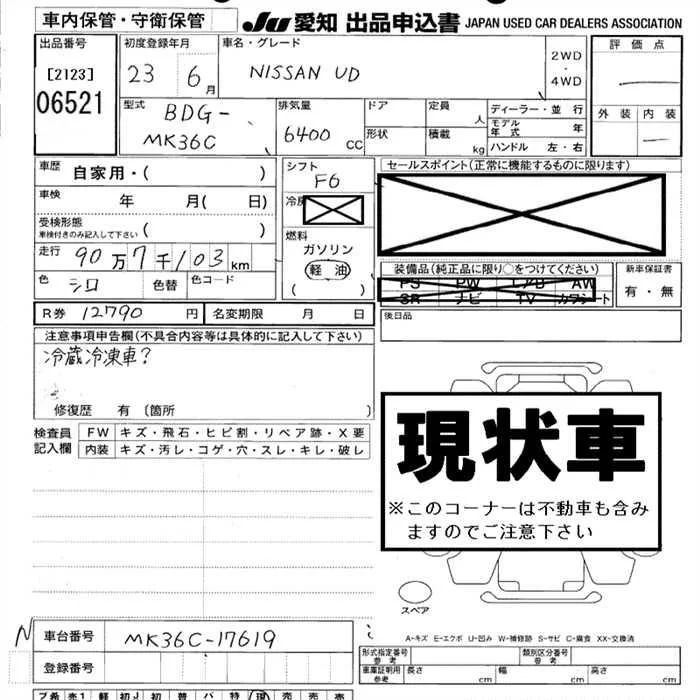 車内保管・守衛保管
JU 愛知 出品申込書 JAPAN USED CAR DEALERS ASSOCIATION
出品番号
[2123]
06521
初度登録年月
23 6 月
車名・グレード
NISSAN UD
2WD
・
4WD
評価点
外装 内装
型式
BDG-
MK36C
排気量
6400 cc
ドア
形状
定員 人
積載 kg
ディーラー・並行
モデル年式 年
ハンドル 左・右
車歴 自家用・( )
車検 年 月( 日)
受検形態
車検付きのみ記入して下さい ( )
走行 90万7千103km
色 シロ 色替 色コード
シフト
F6
冷房
燃料
ガソリン
軽油
( )
セールスポイント(正常に機能するものに限ります)
装備品(純正品に限り○をつけてください)
PS PW L/B AW
SR ナビ TV カワシート
新車保証書
有・無
後日品
R券 12790 円 名変期限 月 日
注意事項申告欄(不具合内容等は具体的に記入して下さい)
冷蔵冷凍車?
修復歴 有 〔箇所 〕
検査員
記入欄
FW キズ・飛石・ヒビ割・リペア跡・X要
内装 キズ・汚レ・コゲ・穴・スレ・キレ・破レ
現状車
※このコーナーは不動車も含み
ますのでご注意下さい
スペア
A-キズ E-エクボ U-凹み W-補修跡 S-サビ C-腐食 XX-交換済
N
車台番号 MK36C-17619
登録番号
型式指定番号
参考
類別区分番号
参考
車庫証明用
参考
長さ cm 幅 cm 高さ cm